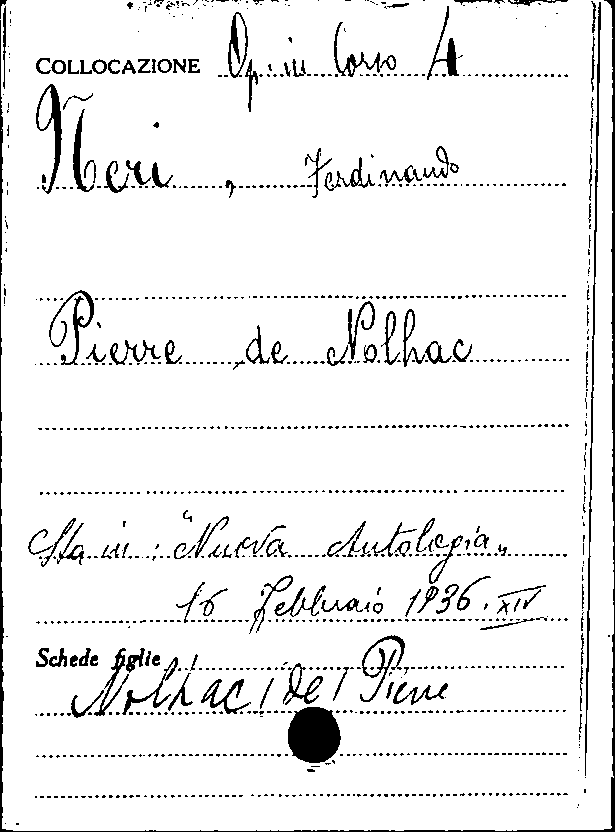 COLLOCAZIONE Op. in Corso 4
Neri, Ferdinando
Pierre de Nolhac
Sta in: "Nuova Antologia"
16 Febbraio 1936. XIV
Schede figlie
Nolhac (de) Pierre